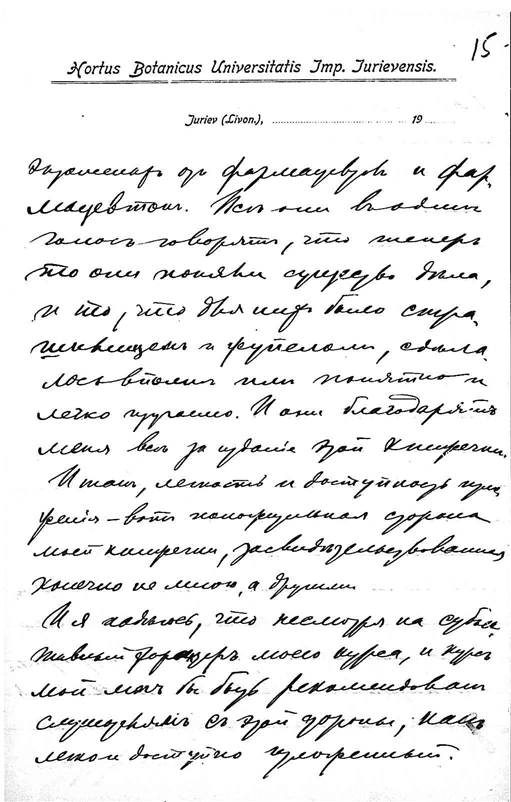 15
Hortus Botanicus Universitatis Imp. Iurievensis.
Juriev (Livon.), 19
экземпляръ отъ фармацевтовъ и фар-
мацевтокъ. Всѣ они въ одинъ
голосъ говорятъ, что теперь
то они поняли существо дѣла,
и то, что для нихъ было стра-
шилищемъ и жупеломъ, сдѣла-
лось вполнѣ имъ понятно и
легко изучаемо. И они благодарятъ
меня всѣ за изданіе этой книжечки.
Итакъ, легкость и доступность изло-
женія – вотъ положительная сторона
моей книжечки, засвидѣтельствованная
конечно не мною, а другими
И я надѣюсь, что несмотря на субъек-
тивный характеръ моего курса, и курсъ
мой могъ бы быть рекомендованъ
слушателямъ съ этой стороны, какъ
легко и доступно изложенный.